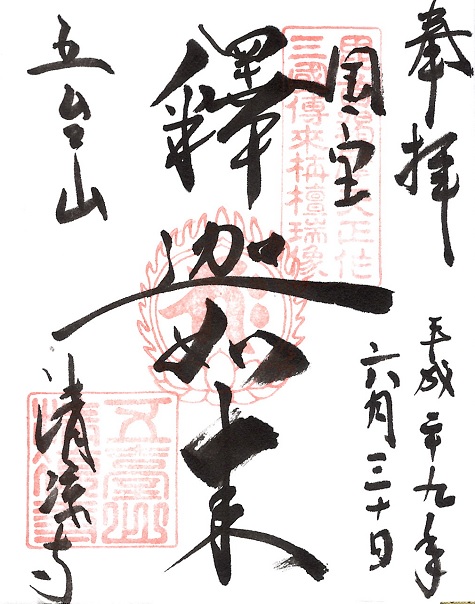 奉拝
平成二十九年
六月三十日
国宝
釋迦如来
三國傳来栴檀瑞像
五台山
清凉寺
五臺山
清凉寺